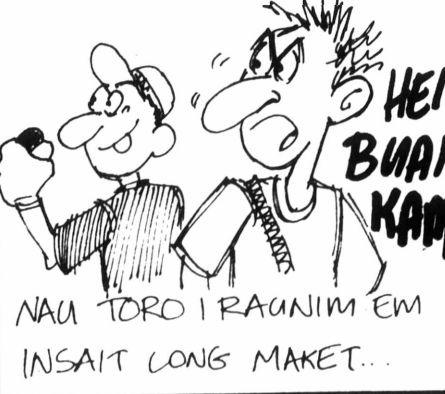 HEI
BUAI
KAM
NAU TORO I RAUNIM EM
INSAIT LONG MAKET...